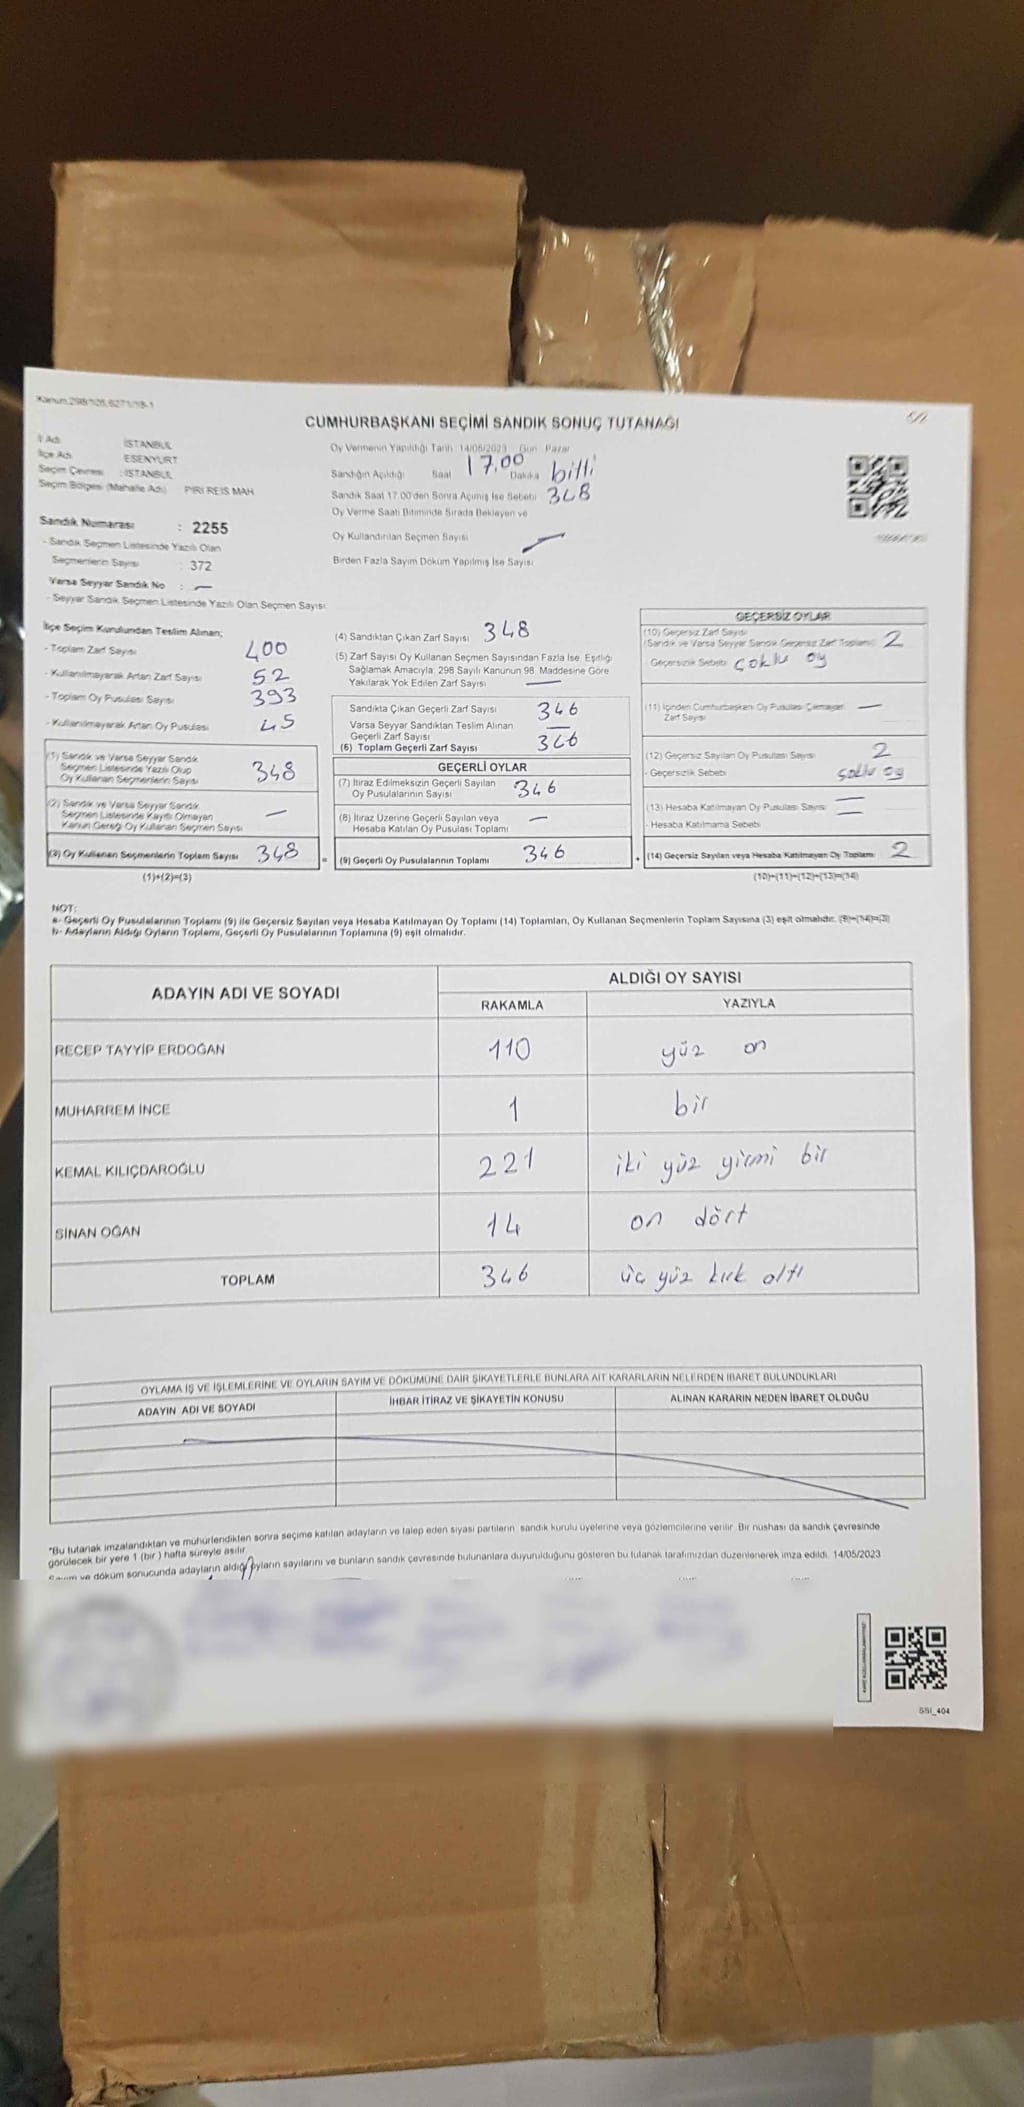 Kanun.298/105,6271/18-1
CUMHURBAŞKANI SEÇİMİ SANDIK SONUÇ TUTANAĞI
İl Adı İSTANBUL
İlçe Adı ESENYURT
Seçim Çevresi : İSTANBUL
Seçim Bölgesi (Mahalle Adı) : PIRI REIS MAH
Sandık Numarası : 2255
- Sandık Seçmen Listesinde Yazılı Olan
Seçmenlerin Sayısı : 372
Varsa Seyyar Sandık No : —
- Seyyar Sandık Seçmen Listesinde Yazılı Olan Seçmen Sayısı
Oy Vermenin Yapıldığı Tarih : 14/05/2023 Gün : Pazar
Sandığın Açıldığı Saat 17.00 Dakika bitti
Sandık Saat 17.00'den Sonra Açılmış İse Sebebi 348
Oy Verme Saati Bitiminde Sırada Bekleyen ve
Oy Kullandırılan Seçmen Sayısı
Birden Fazla Sayım Döküm Yapılmış İse Sayısı
İlçe Seçim Kurulundan Teslim Alınan;
- Toplam Zarf Sayısı 400
- Kullanılmayarak Artan Zarf Sayısı 52
- Toplam Oy Pusulası Sayısı 393
- Kullanılmayarak Artan Oy Pusulası 45
(1) Sandık ve Varsa Seyyar Sandık
Seçmen Listesinde Yazılı Olup
Oy Kullanan Seçmenlerin Sayısı 348
(2) Sandık ve Varsa Seyyar Sandık
Seçmen Listesinde Kayıtlı Olmayan
Kanun Gereği Oy Kullanan Seçmen Sayısı —
(3) Oy Kullanan Seçmenlerin Toplam Sayısı 348
(1)+(2)=(3)
(4) Sandıktan Çıkan Zarf Sayısı 348
(5) Zarf Sayısı Oy Kullanan Seçmen Sayısından Fazla İse, Eşitliği
Sağlamak Amacıyla; 298 Sayılı Kanunun 98. Maddesine Göre
Yakılarak Yok Edilen Zarf Sayısı —
Sandıkta Çıkan Geçerli Zarf Sayısı 346
Varsa Seyyar Sandıktan Teslim Alınan
Geçerli Zarf Sayısı —
(6) Toplam Geçerli Zarf Sayısı 346
GEÇERLİ OYLAR
(7) İtiraz Edilmeksizin Geçerli Sayılan
Oy Pusulalarının Sayısı 346
(8) İtiraz Üzerine Geçerli Sayılan veya
Hesaba Katılan Oy Pusulası Toplamı —
= (9) Geçerli Oy Pusulalarının Toplamı 346
GEÇERSİZ OYLAR
(10) Geçersiz Zarf Sayısı
(Sandık ve Varsa Seyyar Sandık Geçersiz Zarf Toplamı) 2
- Geçersizlik Sebebi çoklu oy
(11) İçinden Cumhurbaşkanı Oy Pusulası Çıkmayan
Zarf Sayısı —
(12) Geçersiz Sayılan Oy Pusulası Sayısı 2
- Geçersizlik Sebebi çoklu oy
(13) Hesaba Katılmayan Oy Pusulası Sayısı —
- Hesaba Katılmama Sebebi —
+ (14) Geçersiz Sayılan veya Hesaba Katılmayan Oy Toplamı 2
(10)+(11)+(12)+(13)=(14)
NOT:
a- Geçerli Oy Pusulalarının Toplamı (9) ile Geçersiz Sayılan veya Hesaba Katılmayan Oy Toplamı (14) Toplamları, Oy Kullanan Seçmenlerin Toplam Sayısına (3) eşit olmalıdır. (9)+(14)=(3)
b- Adayların Aldığı Oyların Toplamı, Geçerli Oy Pusulalarının Toplamına (9) eşit olmalıdır.
ADAYIN ADI VE SOYADI ALDIĞI OY SAYISI
RAKAMLA YAZIYLA
RECEP TAYYİP ERDOĞAN 110 yüz on
MUHARREM İNCE 1 bir
KEMAL KILIÇDAROĞLU 221 iki yüz yirmi bir
SİNAN OĞAN 14 on dört
TOPLAM 346 üç yüz kırk altı
OYLAMA İŞ VE İŞLEMLERİNE VE OYLARIN SAYIM VE DÖKÜMÜNE DAİR ŞİKAYETLERLE BUNLARA AİT KARARLARIN NELERDEN İBARET BULUNDUKLARI
ADAYIN ADI VE SOYADI İHBAR İTİRAZ VE ŞİKAYETİN KONUSU ALINAN KARARIN NEDEN İBARET OLDUĞU
*Bu tutanak imzalandıktan ve mühürlendikten sonra seçime katılan adayların ve talep eden siyasi partilerin sandık kurulu üyelerine veya gözlemcilerine verilir. Bir nüshası da sandık çevresinde
görülecek bir yere 1 (bir) hafta süreyle asılır.
Sayım ve döküm sonucunda adayların aldığı oyların sayılarını ve bunların sandık çevresinde bulunanlara duyurulduğunu gösteren bu tutanak tarafımızdan düzenlenerek imza edildi. 14/05/2023
SSI_404